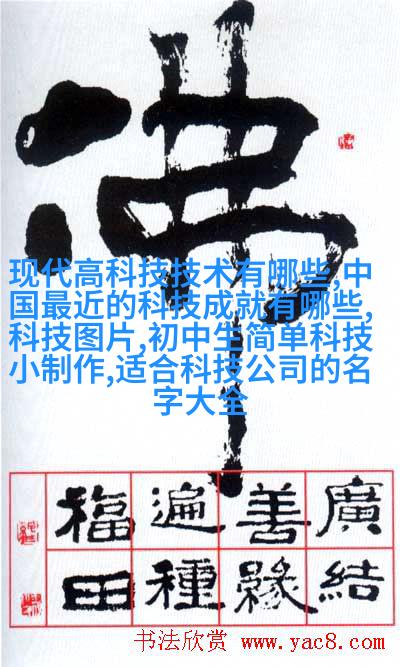 佛
现代高科技技术有哪些,中
国最近的科技成就有哪些,
科技图片,初中生简单科技
小制作,适合科技公司的名
字大全
廣結
善緣
遍種
福田
书法欣赏 www.yac8.com